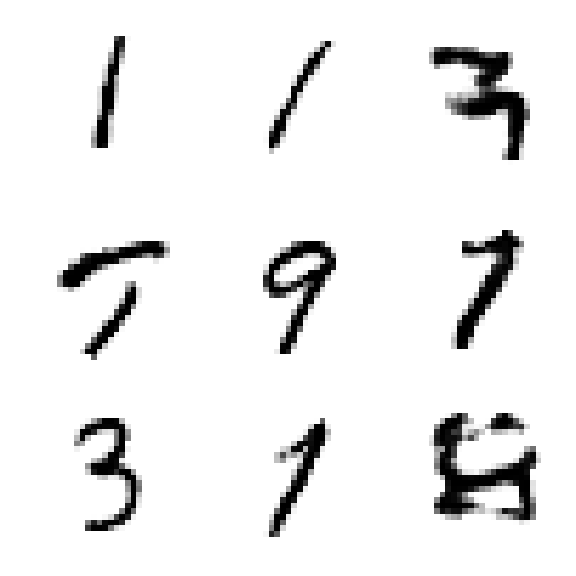 1 1 3
7 9 7
3 1